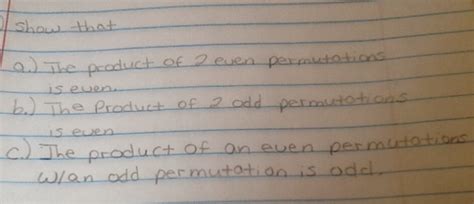 Show that
a.) The product of 2 even permutations
is even.
b.) The Product of 2 odd permutations
is even
c.) The product of an even permutations
w/an odd permutation is odd.